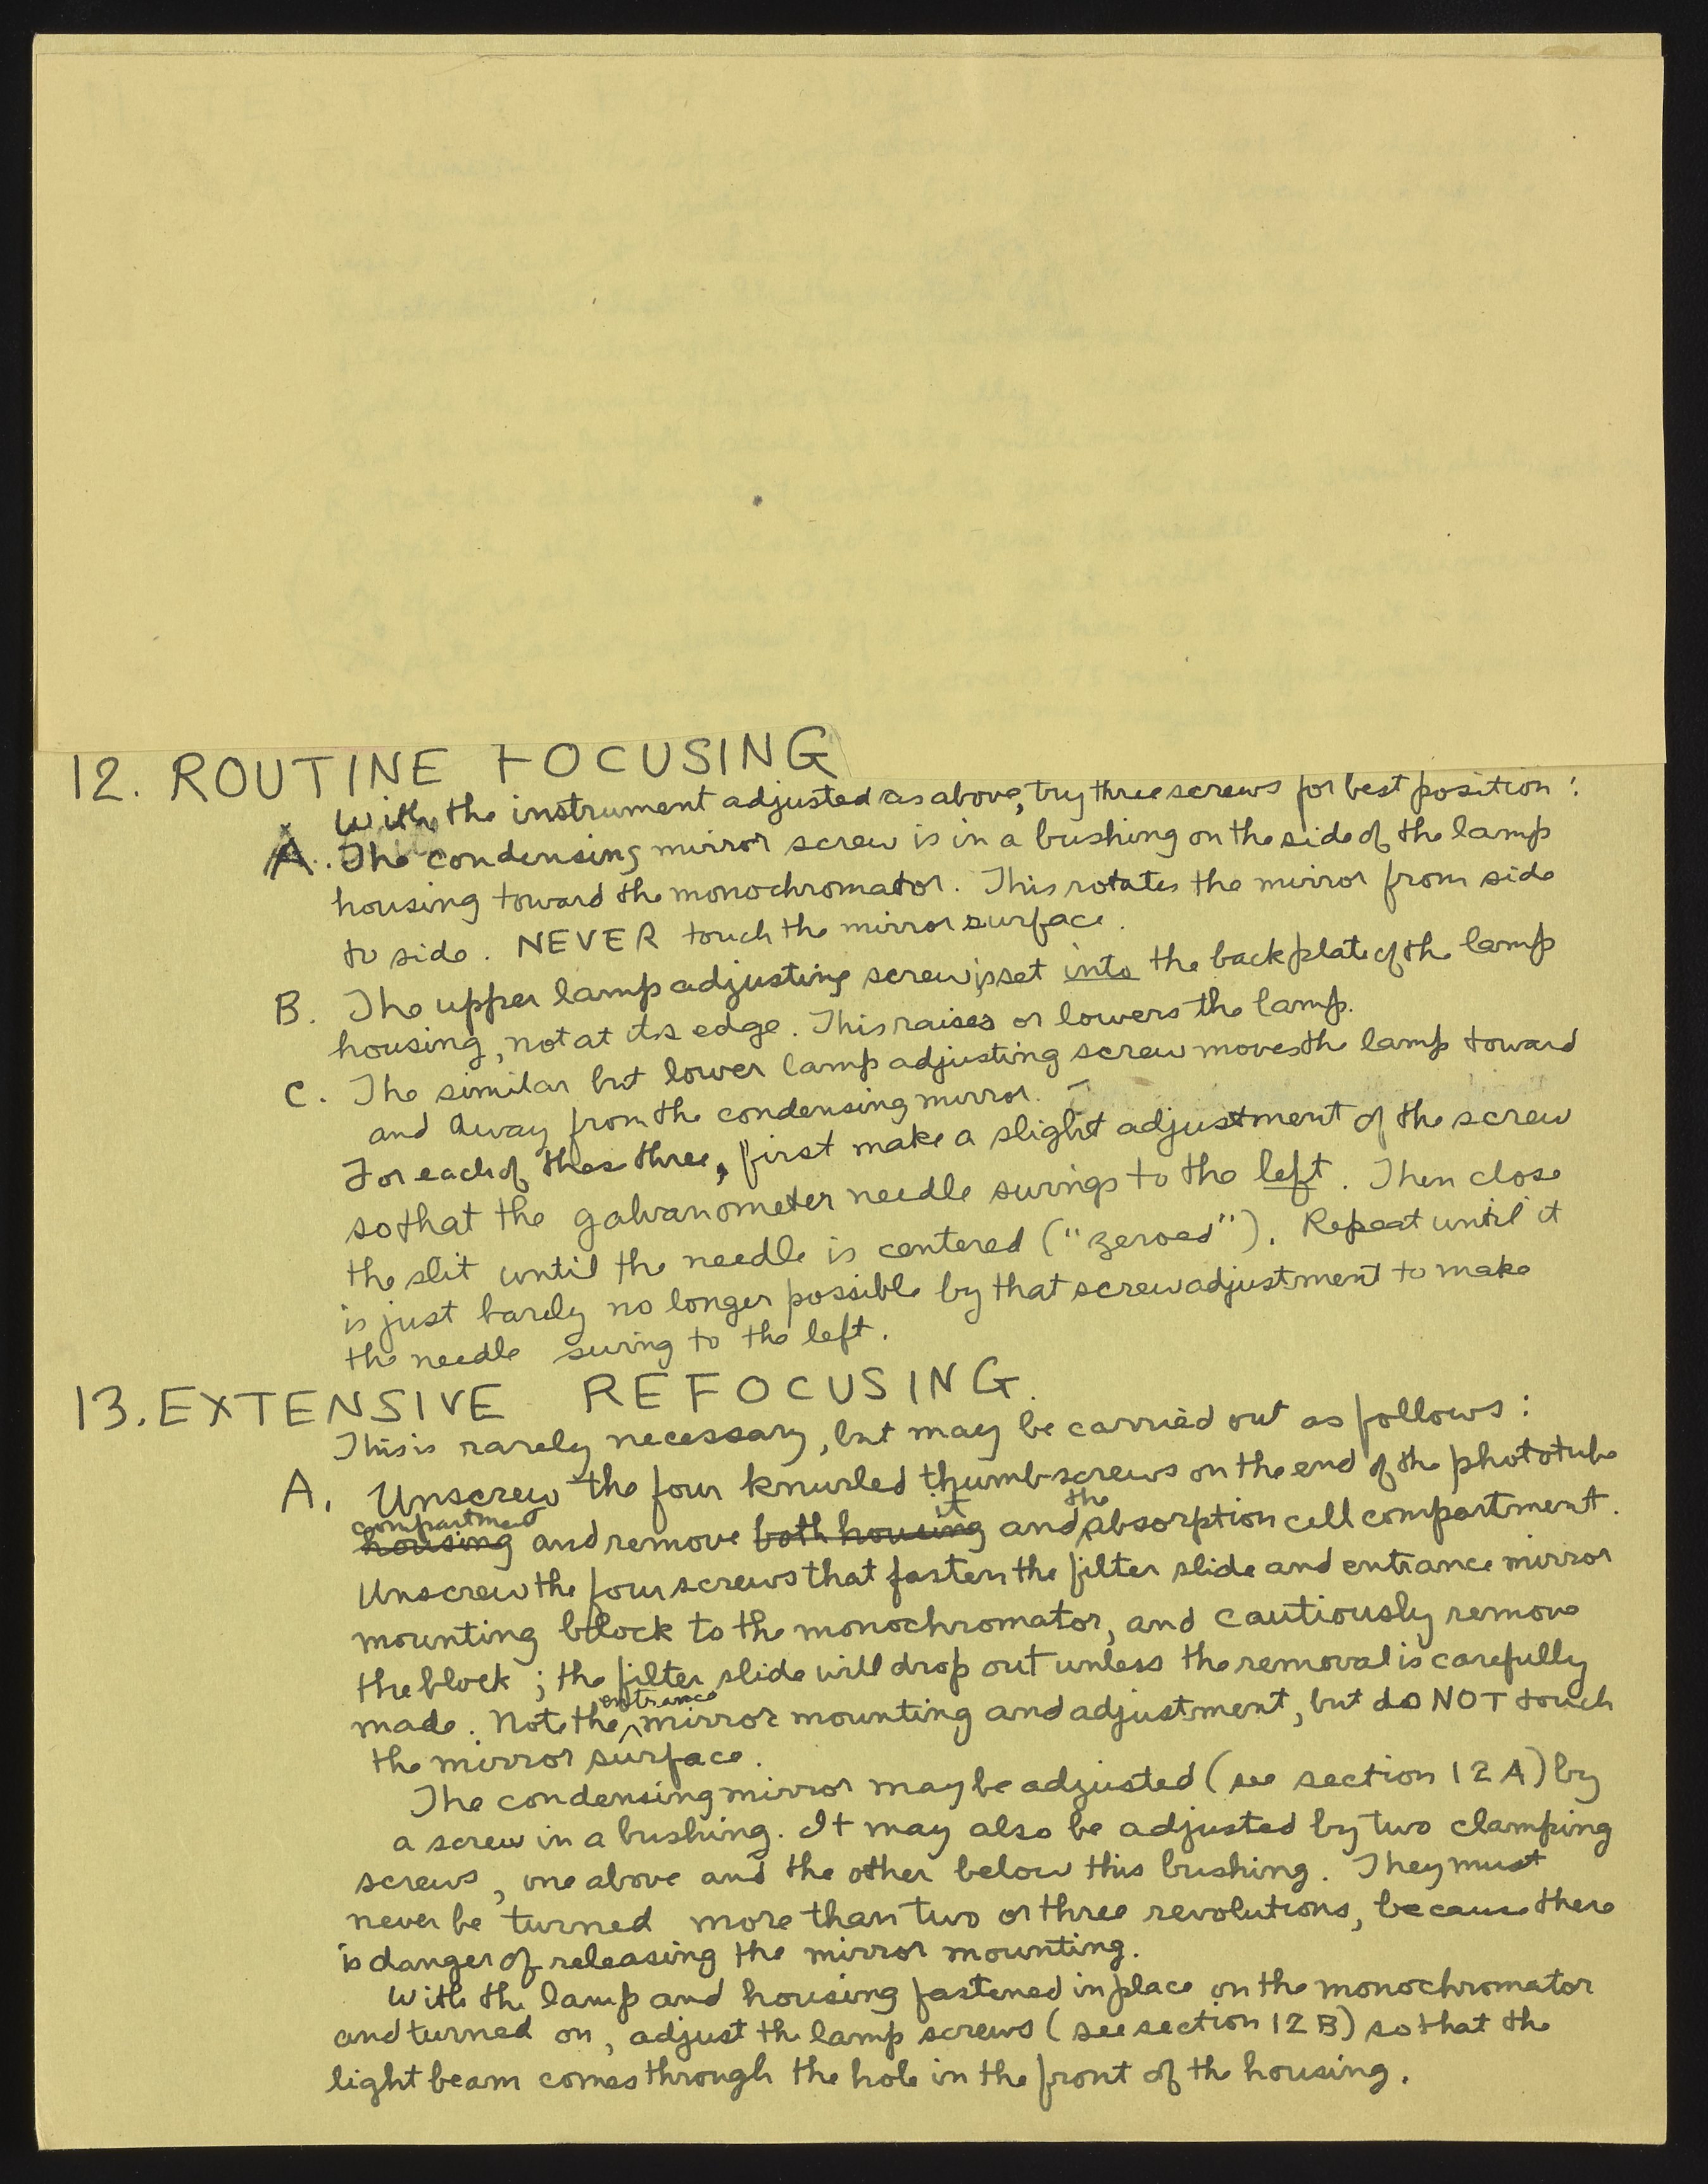 12. ROUTINE FOCUSING
With the instrument adjusted as above, try three screws for best position:
A. The condensing mirror screw is in a bushing on the side of the lamp
housing toward the monochromator. This rotates the mirror from side
to side. NEVER touch the mirror surface.
B. The upper lamp adjusting screw is set into the back plate of the lamp
housing, not at its edge. This raises or lowers the lamp.
C. The similar but lower lamp adjusting screw moves the lamp toward
and away from the condensing mirror.
For each of these three, first make a slight adjustment of the screw
so that the galvanometer needle swings to the left. Then close
the slit until the needle is centered ("zeroed"). Repeat until it
is just barely no longer possible by that screw adjustment to make
the needle swing to the left.
13. EXTENSIVE REFOCUSING.
This is rarely necessary, but may be carried out as follows:
A. Unscrew the four knurled thumb-screws on the end of the phototube
compartment it the
housing and remove both housing and absorption cell compartment.
Unscrew the four screws that fasten the filter slide and entrance mirror
mounting block to the monochromator, and cautiously remove
the block; the filter slide will drop out unless the removal is carefully
entrance
made. Note the mirror mounting and adjustment, but do NOT touch
the mirror surface.
The condensing mirror may be adjusted (see section 12 A) by
a screw in a bushing. It may also be adjusted by two clamping
screws, one above and the other below this bushing. They must
never be turned more than two or three revolutions, because there
is danger of releasing the mirror mounting.
With the lamp and housing fastened in place on the monochromator
and turned on, adjust the lamp screws (see section 12 B) so that the
light beam comes through the hole in the front of the housing.